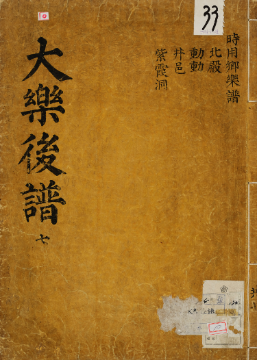 33
時用鄕樂譜
北殿
動動
井邑
紫霞洞
大樂後譜
七